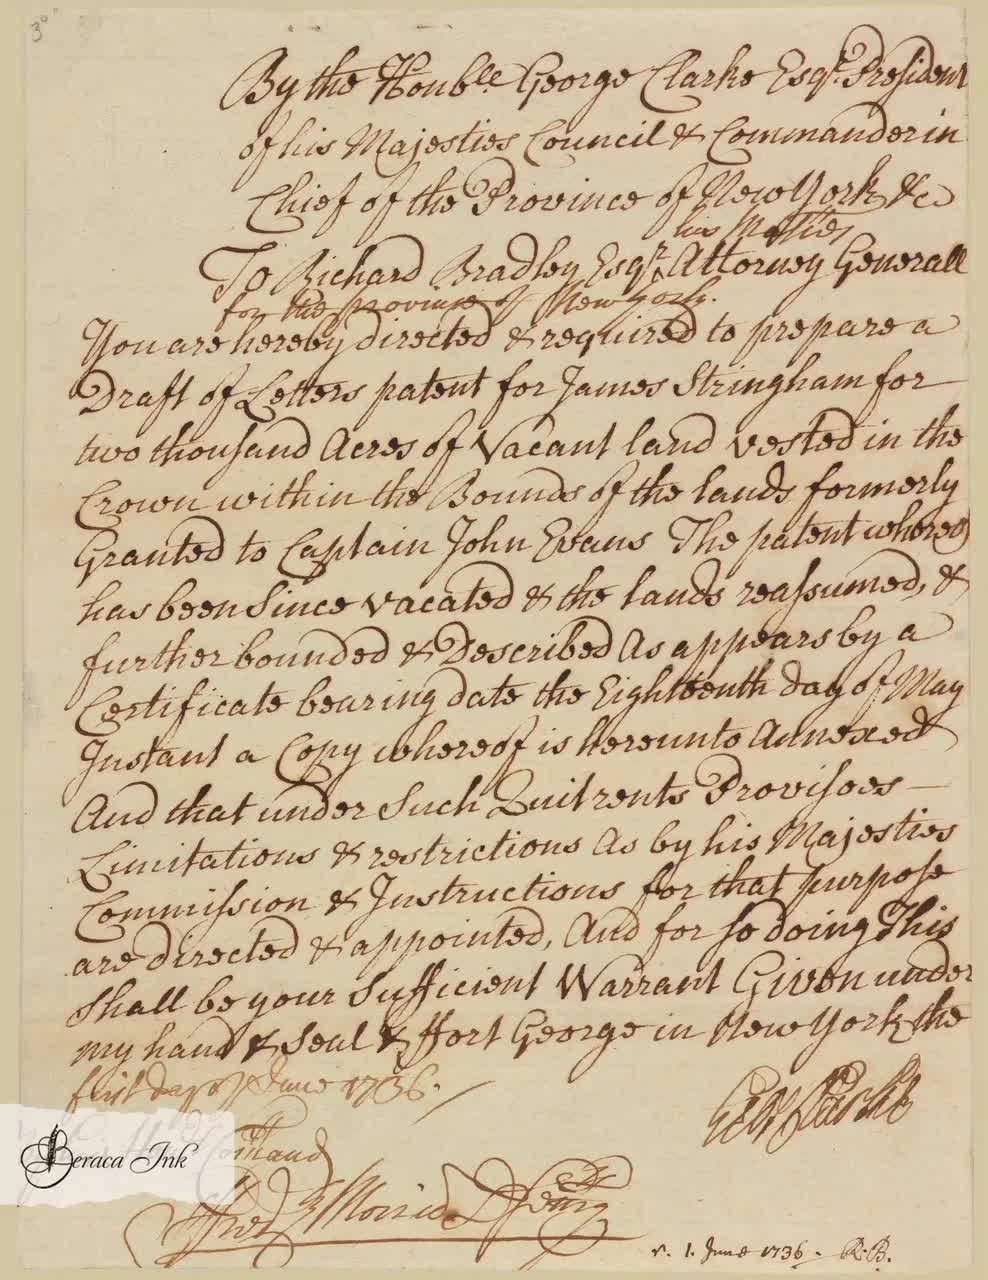 30
By the Honble George Clarke Esqr. President
of his Majesties Council & Commander in
Chief of the Province of New York &c
his Matties
To Richard Bradley Esqr. Attorney Generall
for the province of New York.
You are hereby directed & required to prepare a
Draft of Letters patent for James Stringham for
two thousand Acres of Vacant land vested in the
Crown within the Bounds of the lands formerly
Granted to Captain John Evans The patent whereof
has been Since vacated & the lands reassumed, &
further bounded & Described As appears by a
Certificate bearing date the Eighteenth day of May
Instant a Copy whereof is hereunto Annexed
And that under Such Quitrents Provisoes
Limitations & restrictions As by his Majesties
Commission & Instructions for that purpose
are directed & appointed, And for so doing This
Shall be your Sufficient Warrant Given under
my hand & Seal & ffort George in New York the
first day of June 1736.
Geo Clarke
Cortland
Beraca Ink
Fred Morris D Secry
r. 1. June 1736. R:B.